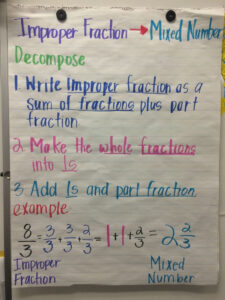 Improper Fraction → Mixed Number
Decompose
1. Write improper fraction as a
sum of fractions plus part
fraction
2. Make the whole fractions
into 1s
3. Add 1s and part fraction
example
8/3 = 3/3 + 3/3 + 2/3 = 1 + 1 + 2/3 = 2 2/3
Improper Mixed
Fraction Number